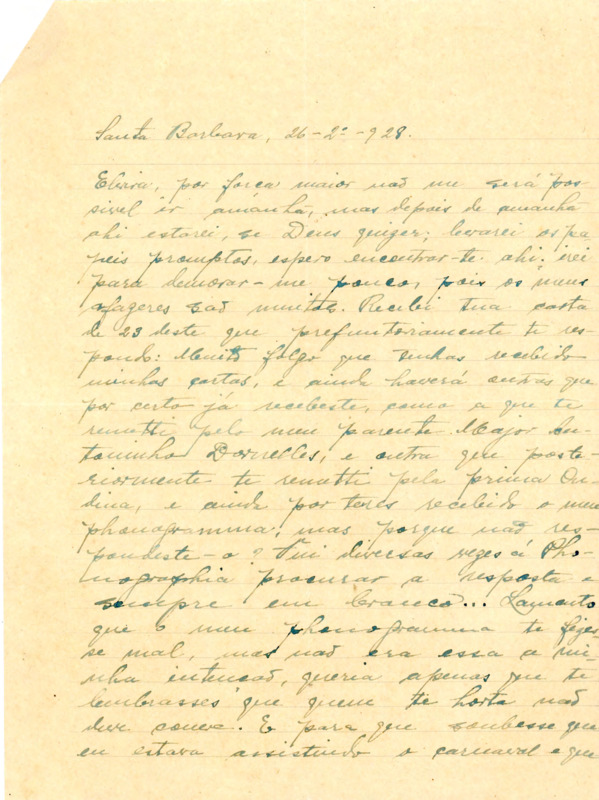 Santa Barbara, 26-2º-928.
Elvira, por força maior naõ me será pos-
sivel ir amanhã, mas depois de amanhã
ahi estarei, se Deus quizer; levarei os pa
peis promptos, espero encontrar-te ahi. irei
para demorar-me pouco, pois os meus
afazeres saõ muitos. Recebi tua carta
de 23 deste que prefuntoriamente te res-
pondo: Muito folgo que tenhas recebido
minhas cartas, e ainda haverá outras que
por certo já recebeste, como a que te
remetti pelo meu parente Major An-
toninho Dornelles, e outra que poste-
riormente te remetti pela prima On-
dina, e ainda por teres recebido o meu
phonogramma, mas porque naõ res-
pondeste-o? Fui diversas vezes á Pho-
nographia procurar a resposta e
sempre em branco... Lamento
que o meu phonogramma te fizes-
se mal, mas naõ era essa a mi-
nha intençaõ, queria apenas que te
lembrasses que quem te horta naõ
deve couve. E para que soubesse que
eu estava assistindo o carnaval e que